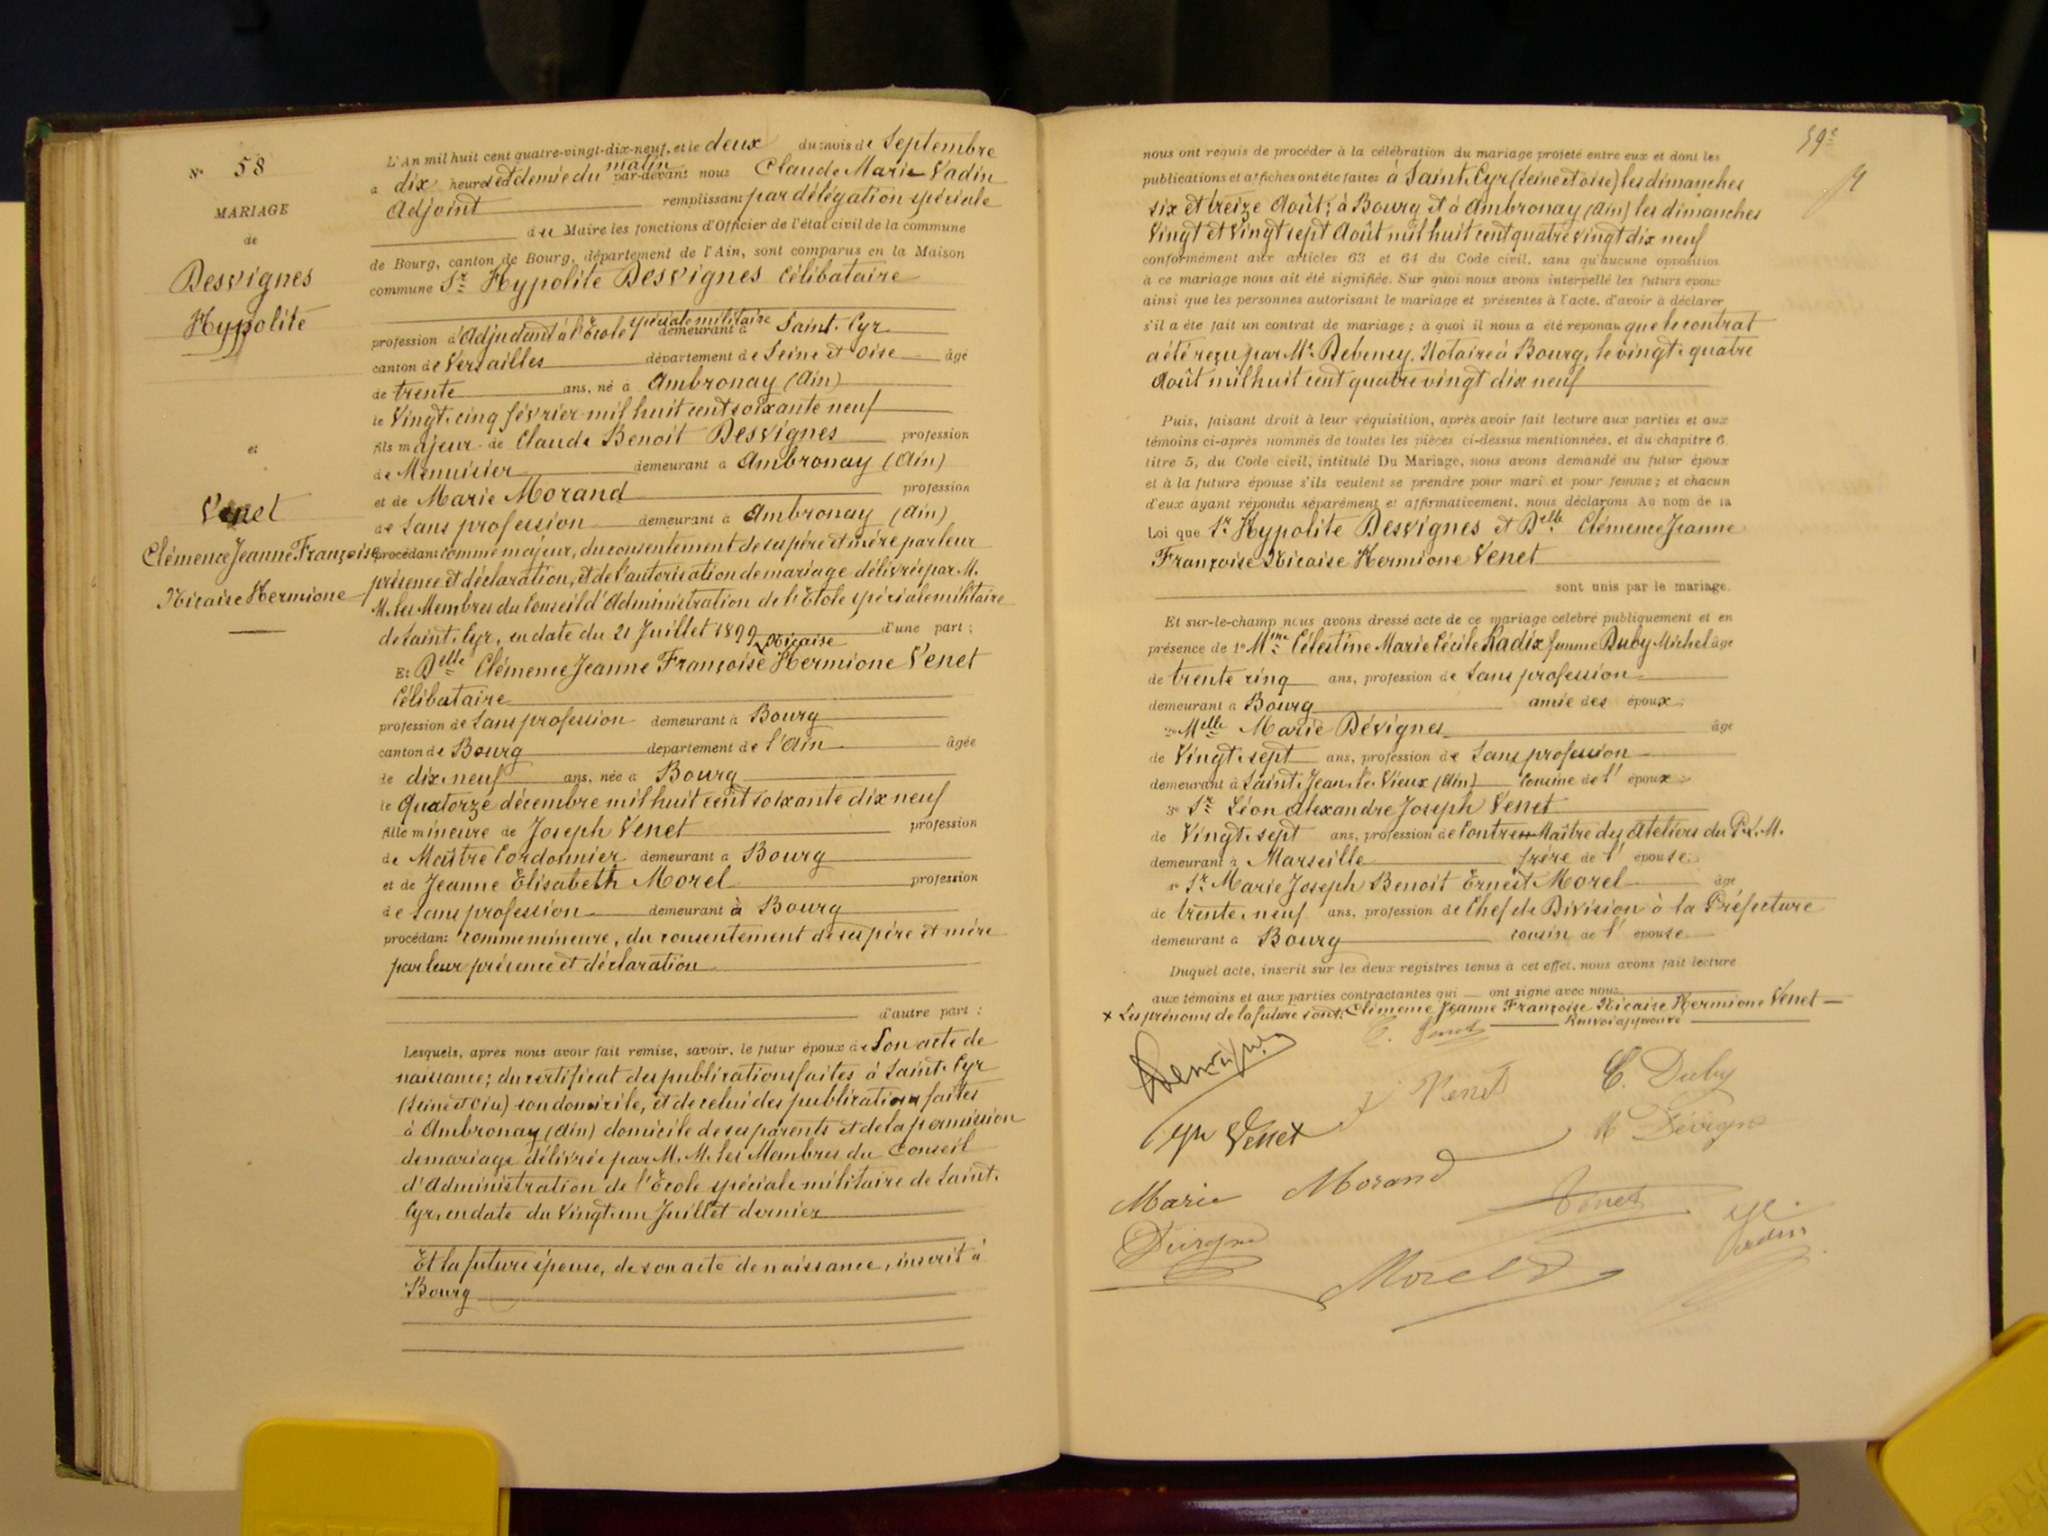 N° 58
MARIAGE
de
Desvignes
Hypolite
et
Venet
Clémence Jeanne Françoise
Nicaise Hermione
L'An mil huit cent quatre-vingt-dix-neuf, et le deux du mois de Septembre
à dix heures et demie du matin par-devant nous Claude Marie Vadin
Adjoint remplissant par délégation spéciale
du Maire les fonctions d'Officier de l'état civil de la commune
de Bourg, canton de Bourg, département de l'Ain, sont comparus en la Maison
commune Sr Hypolite Desvignes Célibataire
profession d'Adjudant à l'École spéciale militaire demeurant à Saint-Cyr
canton de Versailles département de Seine et Oise âgé
de trente ans, né à Ambronay (Ain)
le Vingt-cinq février mil huit cent soixante neuf
fils majeur de Claude Benoit Desvignes profession
de Menuisier demeurant à Ambronay (Ain)
et de Marie Morand profession
de Sans profession demeurant à Ambronay (Ain)
procédant comme majeur, du consentement de ses père et mère par leur
présence et déclaration, et de l'autorisation de mariage délivrée par M.
M. les Membres du Conseil d'Administration de l'École spéciale militaire
de Saint-Cyr, en date du 21 Juillet 1899 d'une part ;
Et Delle Clémence Jeanne Françoise Nicaise Hermione Venet
Célibataire
profession de Sans profession demeurant à Bourg
canton de Bourg département de l'Ain âgée
de dix-neuf ans, née à Bourg
le Quatorze décembre mil huit cent soixante dix neuf
fille mineure de Joseph Venet profession
de Maître Cordonnier demeurant à Bourg
et de Jeanne Élisabeth Morel profession
de Sans profession demeurant à Bourg
procédant comme mineure, du consentement de ses père et mère
par leur présence et déclaration
d'autre part ;
Lesquels, après nous avoir fait remise, savoir, le futur époux de Son acte de
naissance; du certificat des publications faites à Saint-Cyr
(Seine et Oise) son domicile, et de celui des publications faites
à Ambronay (Ain) domicile de ses parents et de la permission
de mariage délivrée par M. M. les Membres du Conseil
d'Administration de l'École spéciale militaire de Saint-
Cyr, en date du Vingt-un Juillet dernier
Et la future épouse, de son acte de naissance, inscrit à
Bourg
59e
nous ont requis de procéder à la célébration du mariage projeté entre eux et dont les
publications et affiches ont été faites à Saint-Cyr (Seine et Oise) les dimanches
six et treize Août; à Bourg et à Ambronay (Ain) les dimanches
Vingt et Vingt sept Août mil huit cent quatre vingt dix neuf
conformément aux articles 63 et 64 du Code civil, sans qu'aucune opposition
à ce mariage nous ait été signifiée. Sur quoi nous avons interpellé les futurs époux
ainsi que les personnes autorisant le mariage et présentes à l'acte, d'avoir à déclarer
s'il a été fait un contrat de mariage ; à quoi il nous a été répondu que le contrat
a été reçu par Me Debeney, Notaire à Bourg, le vingt-quatre
Août mil huit cent quatre vingt dix neuf
Puis, faisant droit à leur réquisition, après avoir fait lecture aux parties et aux
témoins ci-après nommés de toutes les pièces ci-dessus mentionnées, et du chapitre 6,
titre 5, du Code civil, intitulé Du Mariage, nous avons demandé au futur époux
et à la future épouse s'ils veulent se prendre pour mari et pour femme ; et chacun
d'eux ayant répondu séparément et affirmativement, nous déclarons Au nom de la
Loi que Sr Hypolite Desvignes et Delle Clémence Jeanne
Françoise Nicaise Hermione Venet
sont unis par le mariage.
Et sur-le-champ nous avons dressé acte de ce mariage célébré publiquement et en
présence de 1° Mme Célestine Marie Cécile Radix femme Duby Michel âgé
de trente cinq ans, profession de Sans profession
demeurant à Bourg amie des époux ;
2° Melle Marie Dévignes âgé
de Vingt-sept ans, profession de Sans profession
demeurant à Saint-Jean-le-Vieux (Ain) Cousine de l'époux ;
3° Sr Léon Alexandre Joseph Venet
de Vingt-sept ans, profession de Contre-Maître des Ateliers du P.L.M.
demeurant à Marseille frère de l'épouse ;
Sr Marie Joseph Benoit Ernest Morel âgé
de trente-neuf ans, profession de Chef de Division à la Préfecture
demeurant à Bourg cousin de l'épouse
Duquel acte, inscrit sur les deux registres tenus à cet effet, nous avons fait lecture
aux témoins et aux parties contractantes qui ont signé avec nous
x Les prénoms de la future sont: Clémence Jeanne Françoise Nicaise Hermione Venet
Renvoi approuvé
C. Venet
Desvignes
J Venet
C. Duby
Venet
M Dévigne
Marie Morand
Venet
Vadin
Morel